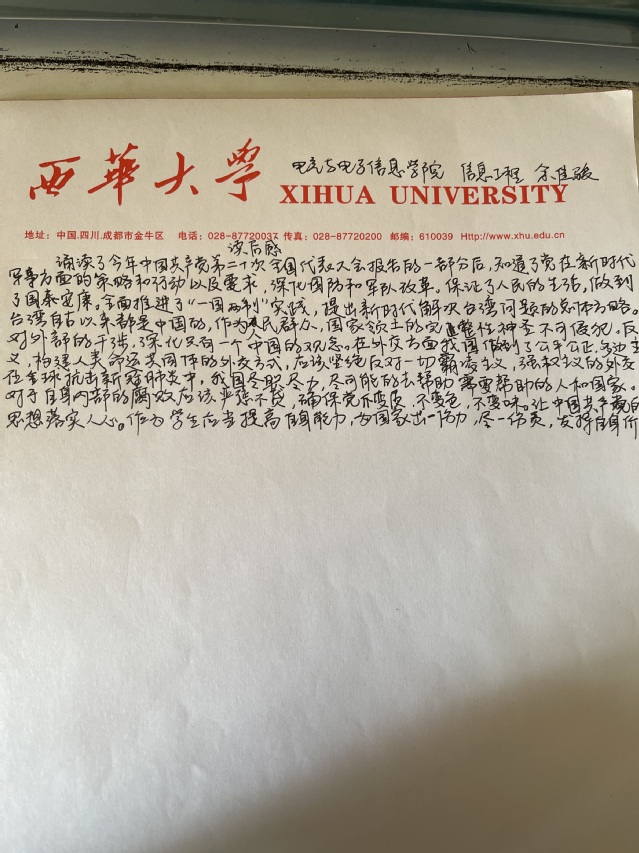 西華大学 电气与电子信息学院 信息工程 余佳骏
XIHUA UNIVERSITY
地址：中国.四川.成都市金牛区 电话：028-87720037 传真：028-87720200 邮编：610039 Http://www.xhu.edu.cn
读后感
诵读了今年中国共产党第二十次全国代表大会报告的一部分后，知道了党在新时代
军事方面的策略和行动以及要求，深化国防和军队改革。保证了人民的生活，做到
了国泰安康。全面推进了“一国两制”实践，提出新时代解决台湾问题的总体方略。
台湾自古以来都是中国的，作为人民群众，国家领土的完整性神圣不可侵犯，反
对外部的干涉，深化只有一个中国的观念。在外交方面我国做到了公平公正，多边主
义，构建人类命运共同体的外交方式，应该坚绝反对一切霸凌主义，强权主义的外交
在全球抗击新冠肺炎中，我国尽职尽力，尽可能的去帮助需要帮助的人和国家。
对于自身内部的腐败应该严惩不贷，确保党不变质，不变色，不变味。让中国共产党的
思想落实人心。作为学生应当提高自身能力，为国家出一份力，尽一份责，发挥自身价